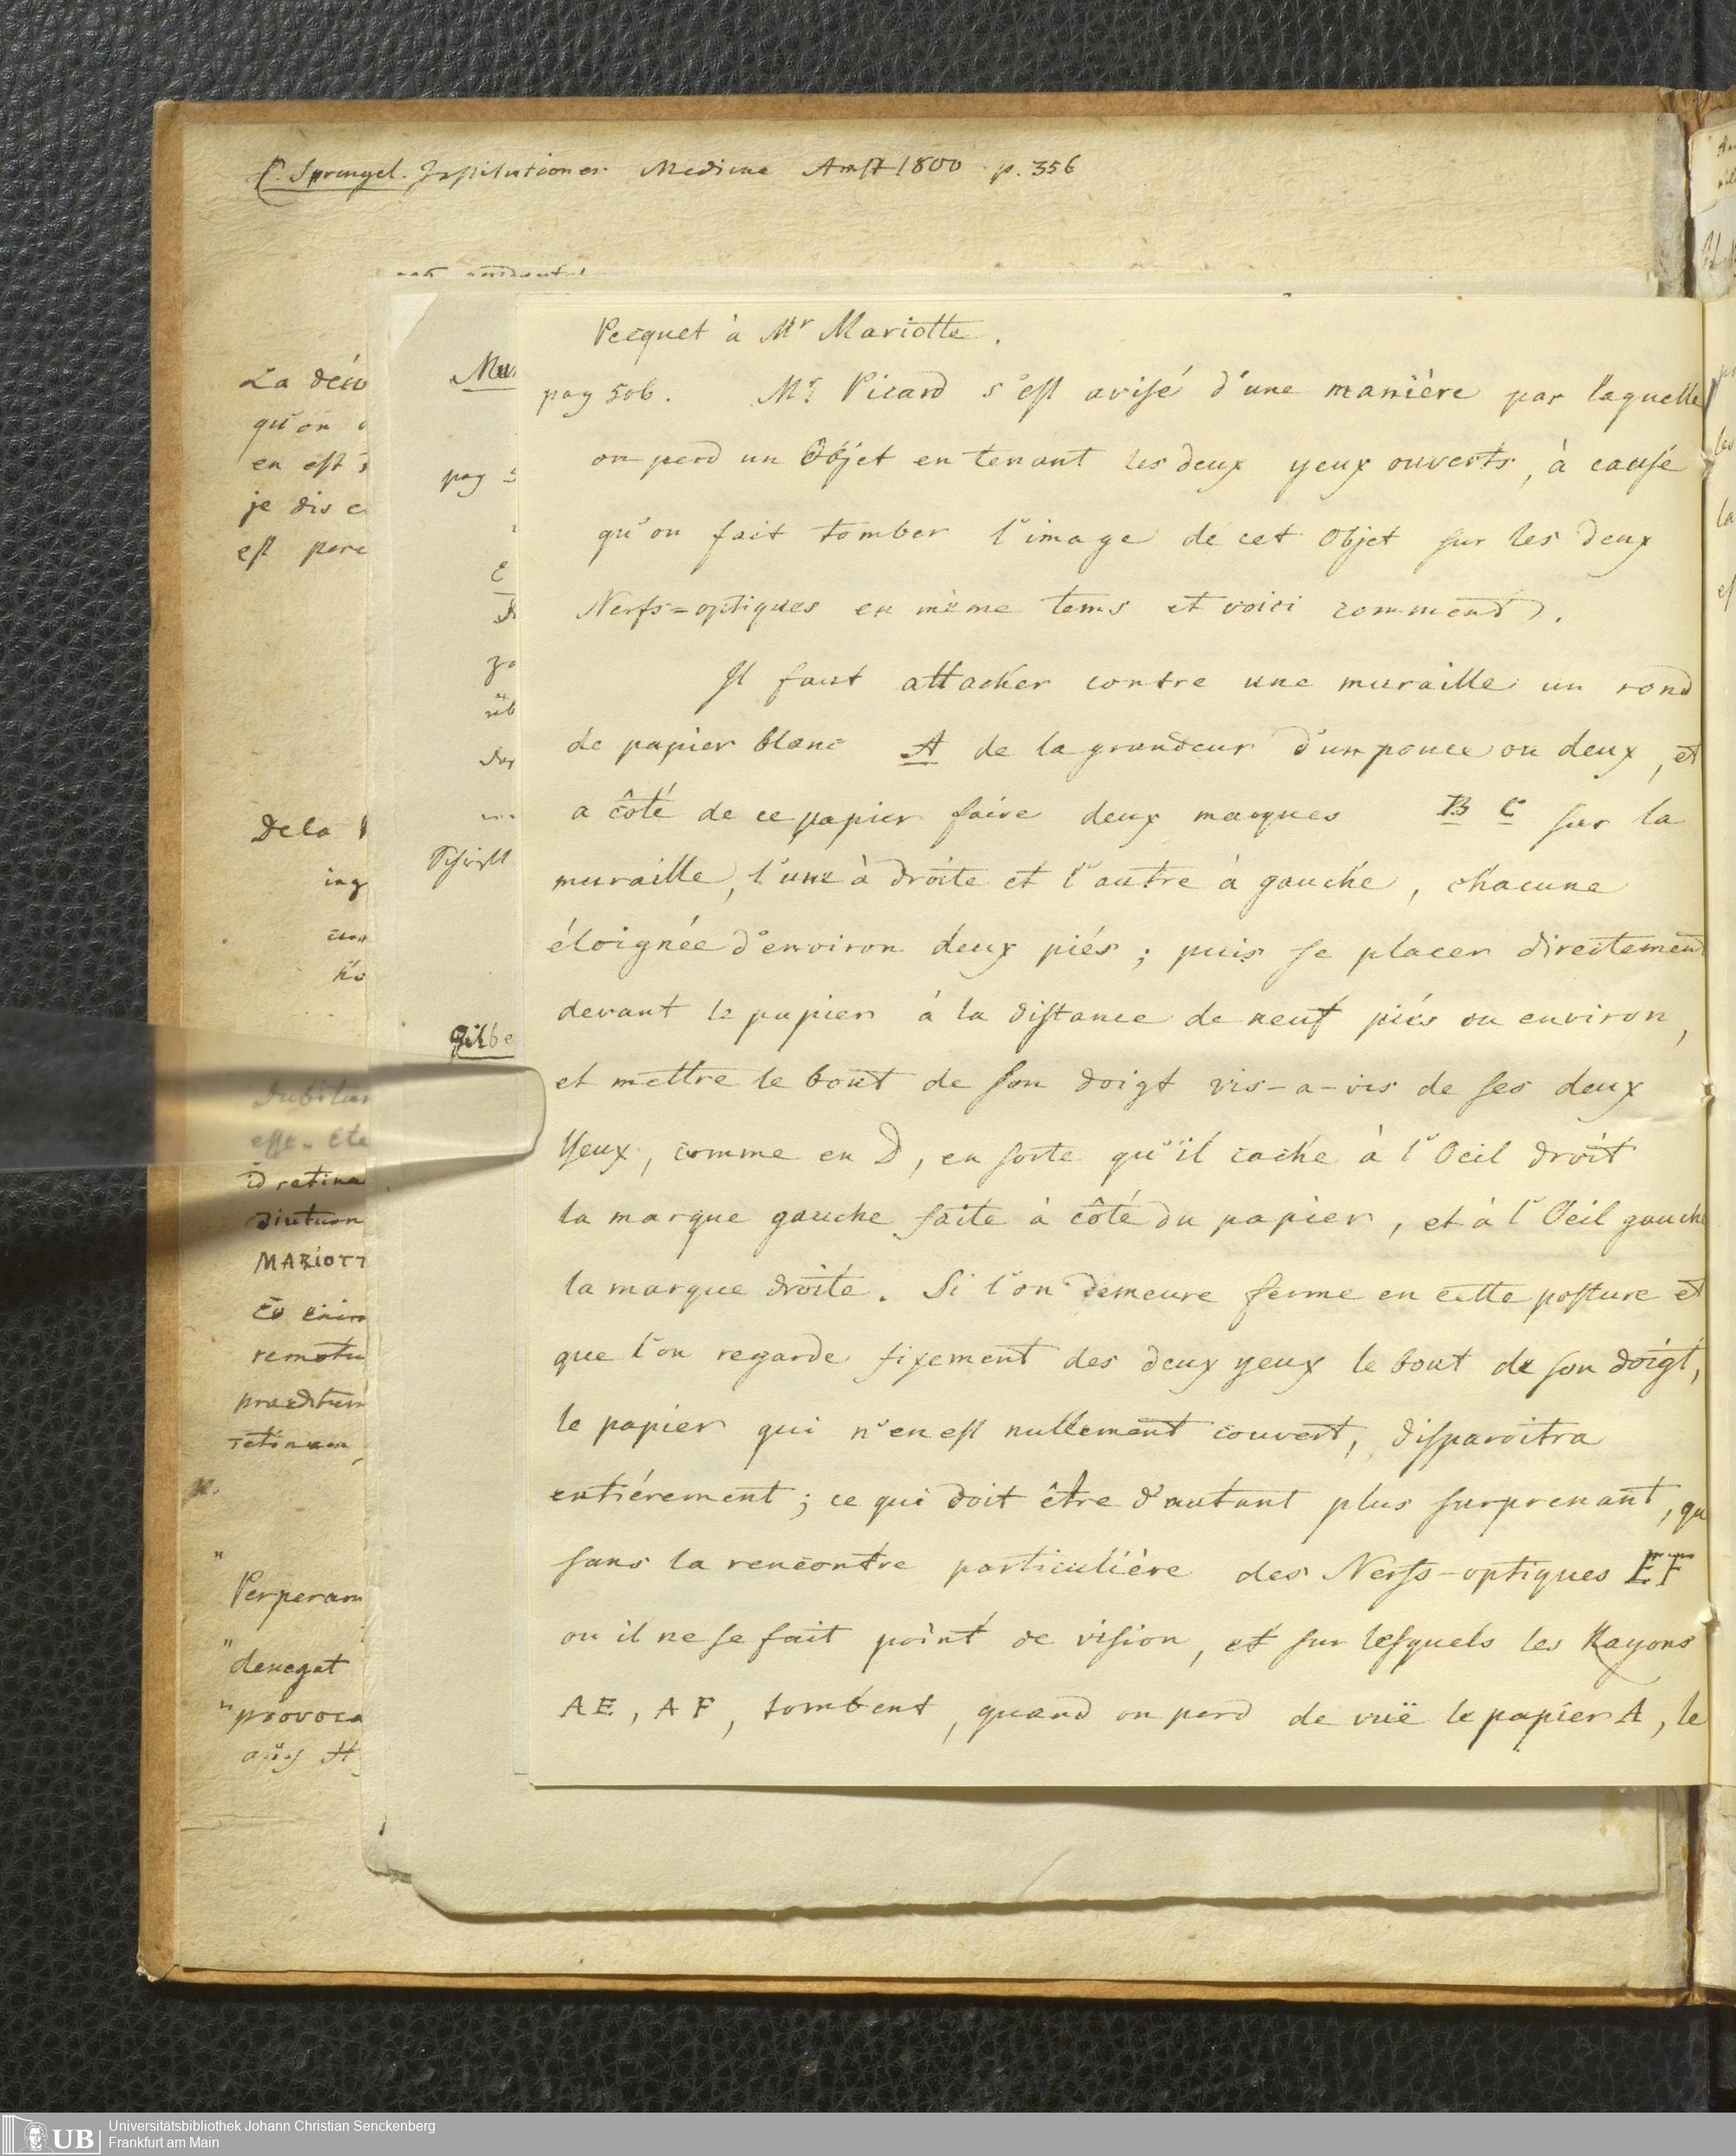 C. Sprengel. Institutiones Medicae Amst 1800 p. 356
Pecquet à Mr Mariotte.
pag 506. Mr Picard s'est avisé d'une manière par laquelle
on perd un Objet en tenant les deux yeux ouverts, à cause
qu'on fait tomber l'image de cet Objet sur les deux
Nerfs=optiques en même tems et voici comment).
Il faut attacher contre une muraille un rond
de papier blanc A de la grandeur d'un pouce ou deux, et
a côté de ce papier faire deux marques B C sur la
muraille, l'une à droite et l'autre à gauche, chacune
éloignée d'environ deux piés; puis se placer directement
devant le papier à la distance de neuf piés ou environ,
et mettre le bout de son doigt vis-a-vis de ses deux
Yeux, comme en D, en sorte qu'il cache à l'Oeil droit
la marque gauche faite à côté du papier, et à l'Oeil gauche
la marque droite. Si l'on demeure ferme en cette posture et
que l'on regarde fixement des deux yeux le bout de son doigt,
le papier qui n'en est nullement couvert, disparoitra
entiérement; ce qui doit être d'autant plus surprenant, qu
sans la rencontre particulière des Nerfs-optiques EF
ou il ne se fait point de vision, et sur lesquels les Rayons
AE, AF, tombent, quand on perd de vuë le papier A, le
La
qu'on
en est
je dis
est
De la
id retina
MARIOTT
remotu
Perperam
denegat
provoca
pag
Gilbe
Universitätsbibliothek Johann Christian Senckenberg
Frankfurt am Main
UB